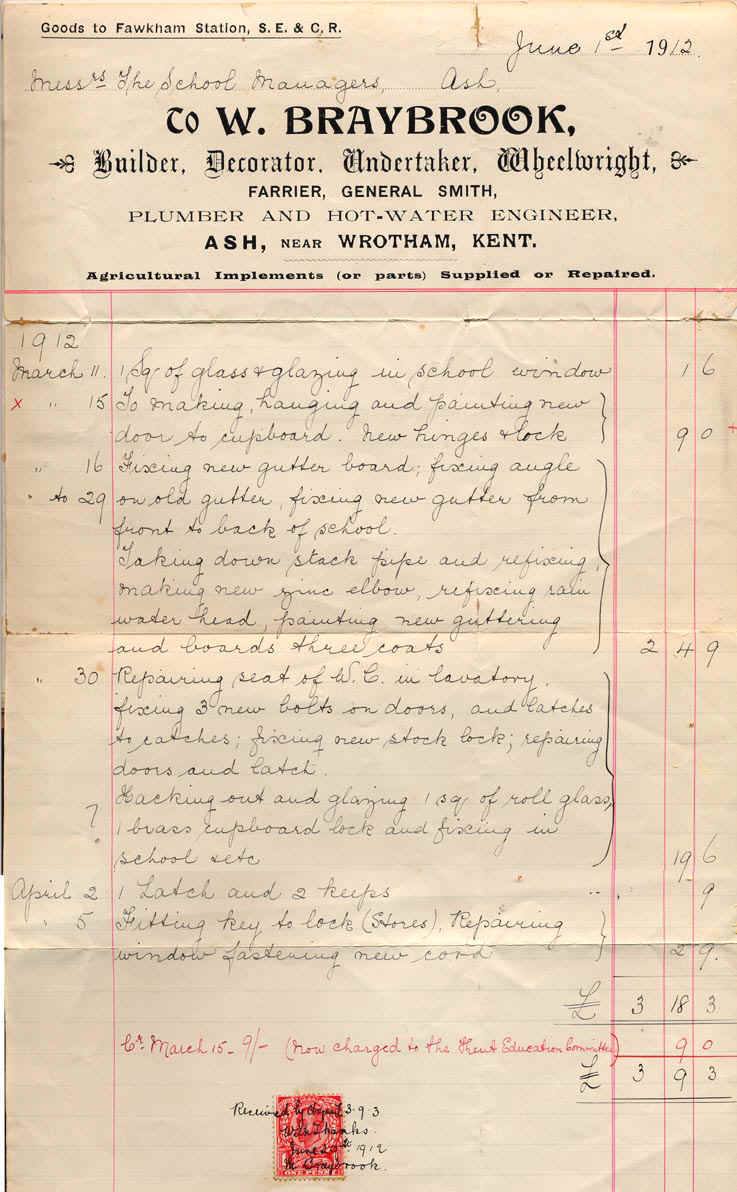 Goods to Fawkham Station, S. E. & C. R.
June 1st 1912.
Messrs The School Managers, Ash,
To W. BRAYBROOK,
Builder, Decorator, Undertaker, Wheelwright,
FARRIER, GENERAL SMITH,
PLUMBER AND HOT-WATER ENGINEER,
ASH, NEAR WROTHAM, KENT.
Agricultural Implements (or parts) Supplied or Repaired.
1912
March 11. 1 Sq of glass & glazing in school window 1 6
x " 15 To making, hanging and painting new
door to cupboard. New hinges & lock 9 0 +
" 16 Fixing new gutter board; fixing angle
" to 29 on old gutter, fixing new gutter from
front to back of school.
Taking down stack pipe and refixing,
making new zinc elbow, refixing rain
water head, painting new guttering
and boards three coats 2 4 9
" 30 Repairing seat of W.C. in lavatory.
fixing 3 new bolts on doors, and latches
to catches; fixing new stock lock; repairing
doors and latch.
Hacking out and glazing 1 sq of roll glass,
? 1 brass cupboard lock and fixing in
school setc 19 6
April 2 1 Latch and 2 keeps " 9
" 5 Fitting key to lock (Stores), Repairing
window fastening new cord 2 9.
£ 3 18 3
Cr. March 15 - 9/- (Now charged to the Kent Education Committee) 9 0
£ 3 9 3
Received by 3. 9 3
With Thanks
June 1912
W Braybrook.
ONE PENNY